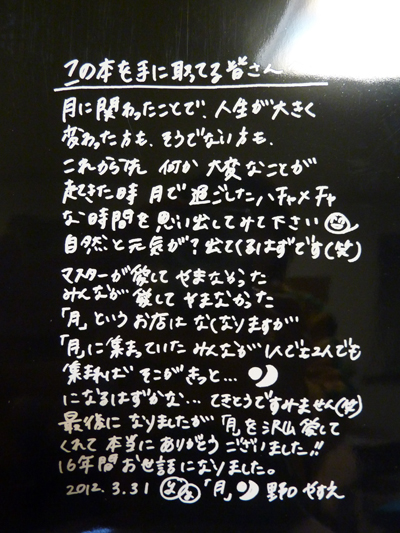 この本を手に取ってる皆さん
月に関わったことで、人生が大きく
変わった方も、そうでない方も、
これから先 何か大変なことが
起きた時 月で過ごしたハチャメチャ
な時間を思い出してみて下さい
自然と元気が?出てくるはずです(笑)
マスターが愛してやまなかった
みんなが愛してやまなかった
「月」というお店はなくなりますが
「月」に集まっていたみんなが1人でも2人でも
集まれば そこがきっと…
になるはずかな…てきとうですみません(笑)
最後になりましたが「月」を沢山愛して
くれて本当にありがとうございました!!
16年間お世話になりました。
2012.3.31 「月」 野口 やすえ